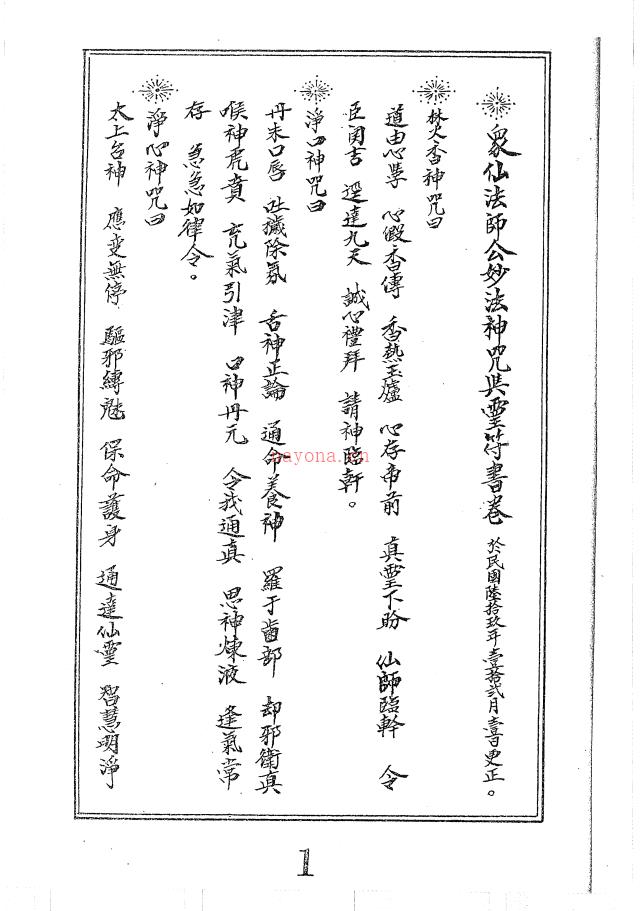 眾仙法師公妙法神咒與靈符書卷 於民國陸拾玖年壹拾貳月壹日更正。
焚香神咒曰
道由心學 心假香傳 香熱玉爐 心存帝前 真靈下盼 仙師臨幹 令
臣関告 逕達九天 誠心禮拜 請神臨軒。
淨口神咒曰
丹朱口唇 吐穢除氛 舌神正論 通命養神 羅于齒部 却邪衛真
喉神虎賁 充氣引津 口神丹元 令我通真 思神煉液 逢氣常
存 急急如律令。
淨心神咒曰
太上台神 應变無停 驅邪縛魅 保命護身 通達仙靈 智慧明淨
payona.cn
1